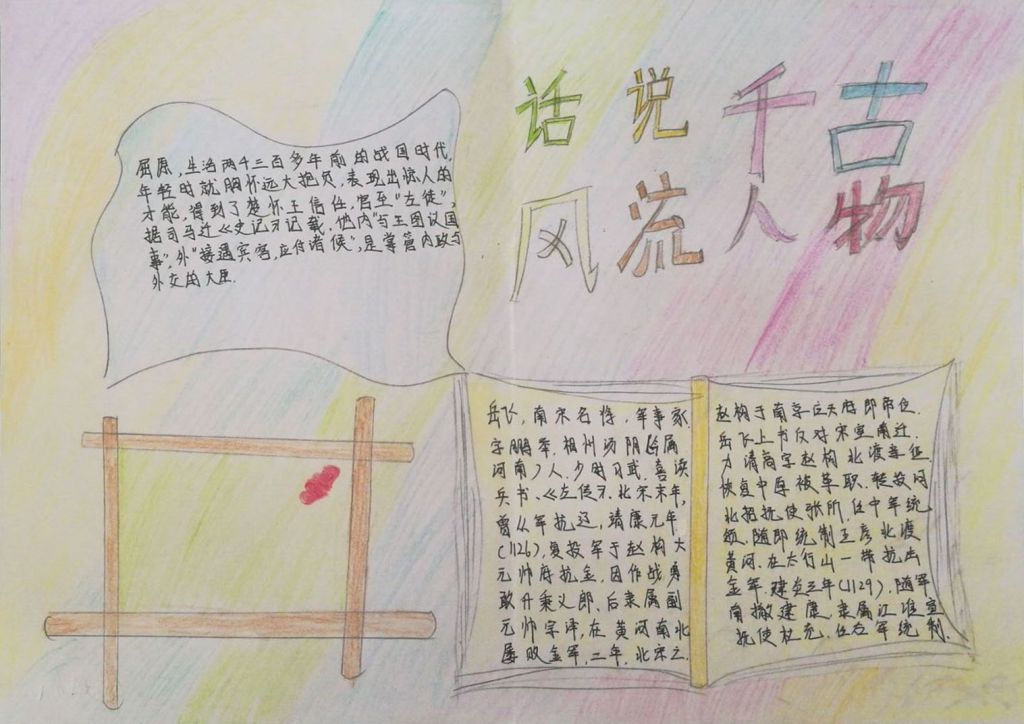 话说千古
风流人物
屈原，生活两千三百多年前的战国时代，
年轻时就胸怀远大抱负，表现出惊人的
才能，得到了楚怀王信任，官至“左徒”，
据司马迁《史记》记载，他内“与王图议国
事”，外“接遇宾客，应付诸侯”，是掌管内政与
外交的大臣.
岳飞，南宋名将，军事家.
字鹏举.相州汤阴(今属
河南)人.少时习武.喜读
兵书、《左传》.北宋末年，
曾从军抗辽，靖康元年
(1126)，复投军于赵构大
元帅府抗金，因作战勇
敢升秉义郎、后隶属副
元帅宗泽，在黄河南北
屡败金军，二年.北宋亡.
赵构于南京应天府即帝位.
岳飞上书反对宋室南迁.
力请高宗赵构北渡亲征
恢复中原被革职.转投河
北招抚使张所，任中军统
领.随即统制王彦北渡
黄河.在太行山一带抗击
金军.建炎三年(1129)，随军
南撤建康.隶属江淮宣
抚使杜充.任右军统制.